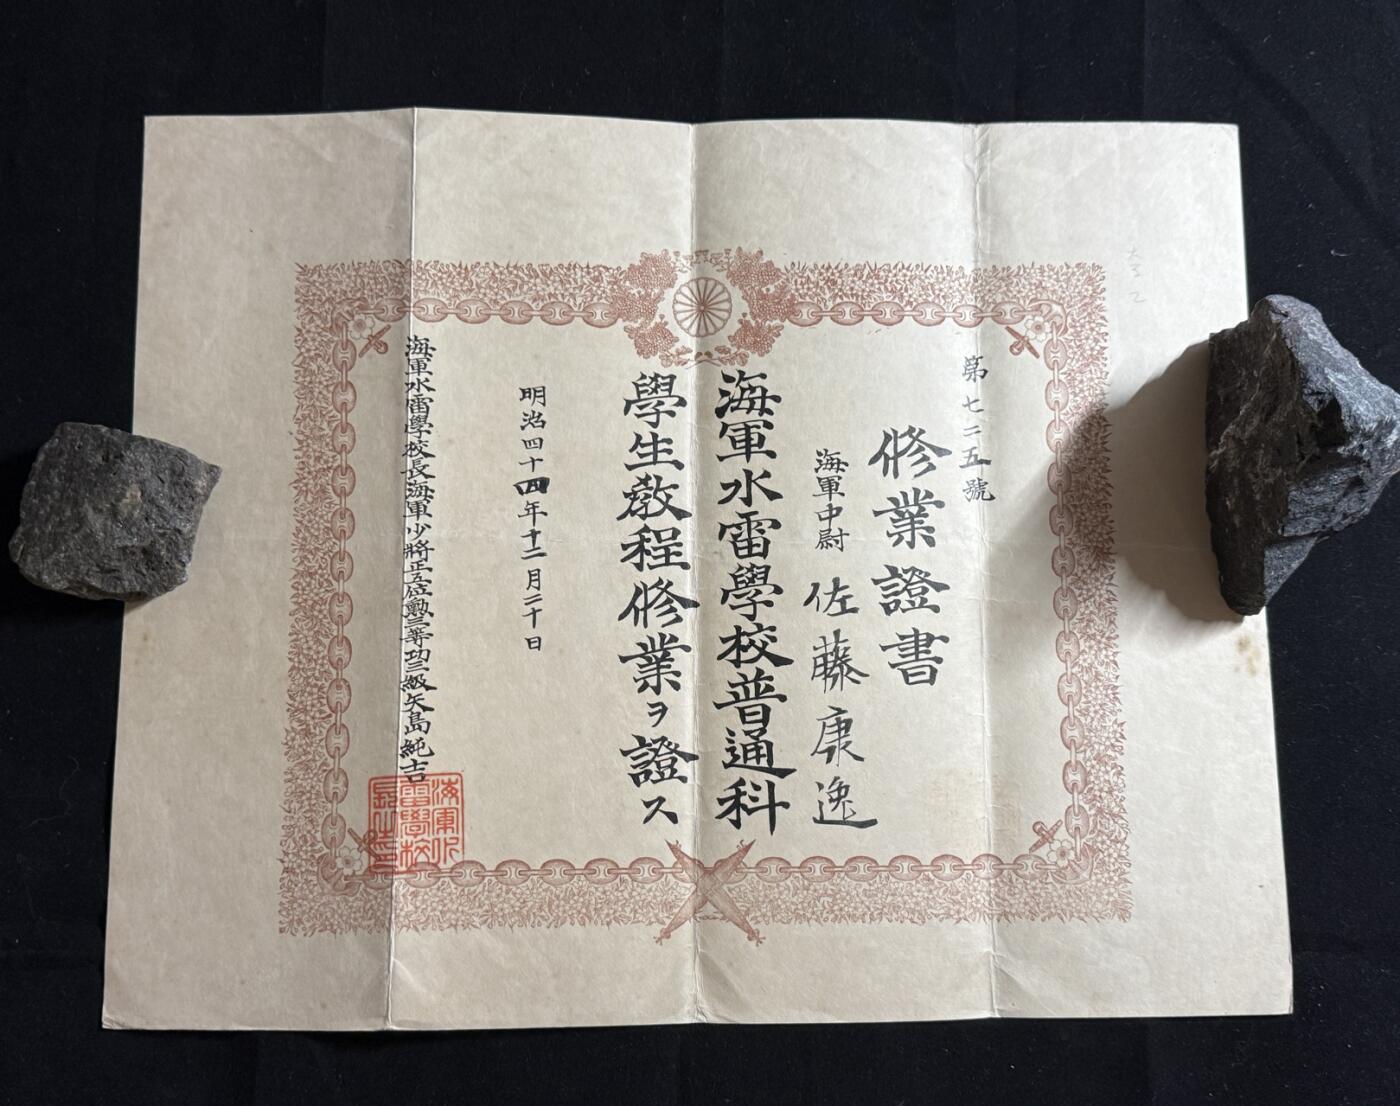 第七二五號
修業證書
海軍中尉 佐藤康逸
海軍水雷學校普通科
學生教程修業ヲ證ス
明治四十四年十二月二十日
海軍水雷學校長海軍少將正五位勲三等功三級矢島純吉
海軍水
雷學校
長之印